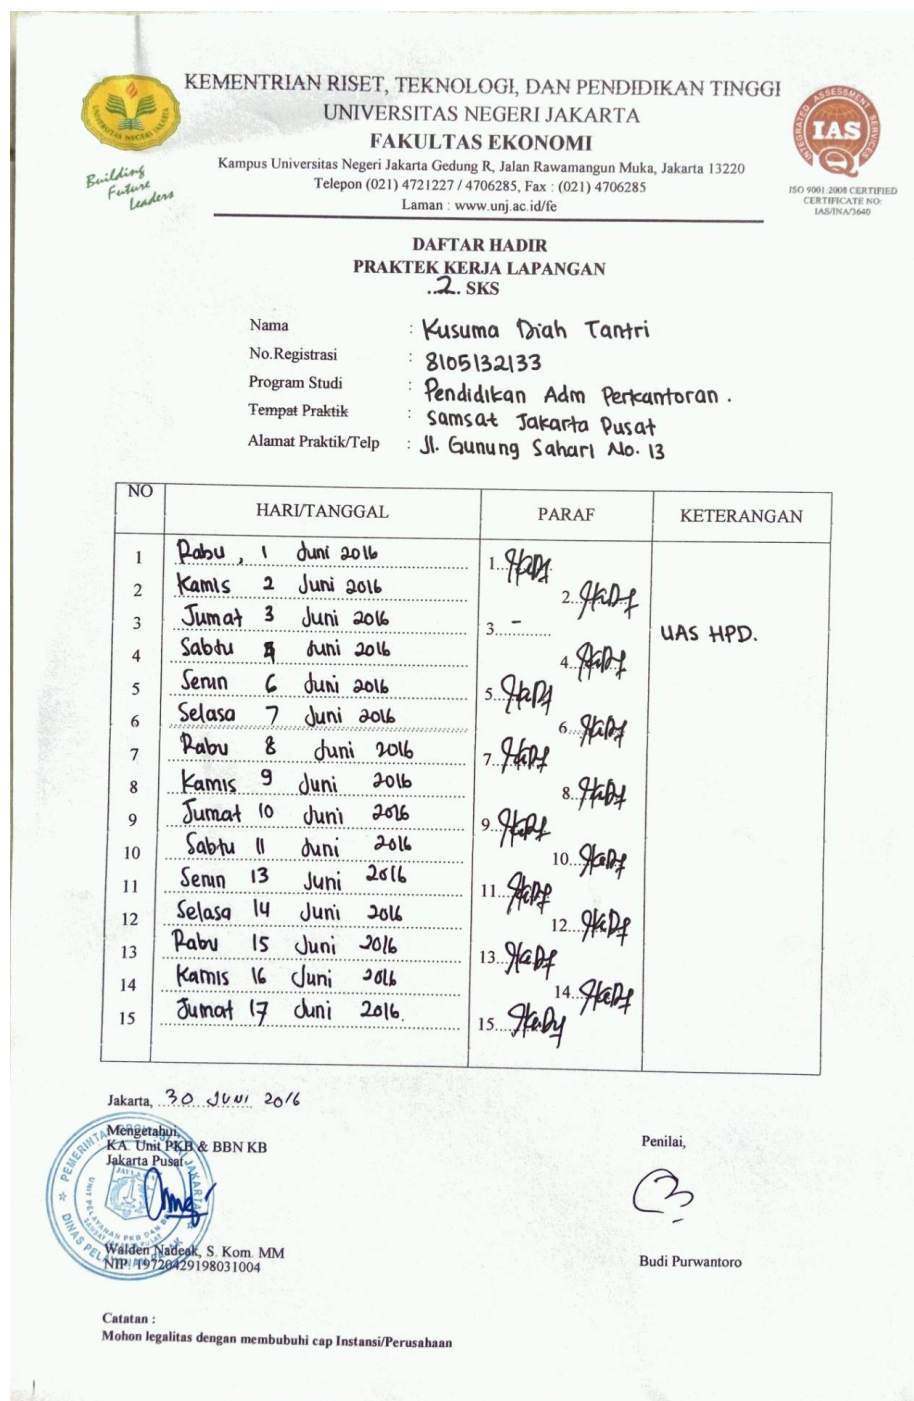 KEMENTRIAN RISET, TEKNOLOGI, DAN PENDIDIKAN TINGGI
UNIVERSITAS NEGERI JAKARTA
FAKULTAS EKONOMI
Kampus Universitas Negeri Jakarta Gedung R, Jalan Rawamangun Muka, Jakarta 13220
Telepon (021) 4721227 / 4706285, Fax : (021) 4706285
Laman : www.unj.ac.id/fe
UNIVERSITAS NEGERI JAKARTA
Building
Future
Leaders
INTEGRATED ASSESSMENT SERVICES
IAS
ISO 9001:2008 CERTIFIED
CERTIFICATE NO:
IAS/INA/3640
DAFTAR HADIR
PRAKTEK KERJA LAPANGAN
..2.. SKS
Nama : Kusuma Diah Tantri
No.Registrasi : 8105132133
Program Studi : Pendidikan Adm Perkantoran .
Tempat Praktik : Samsat Jakarta Pusat
Alamat Praktik/Telp : Jl. Gunung Sahari No. 13
NO HARI/TANGGAL PARAF KETERANGAN
1 Rabu, 1 Juni 2016 1.
2 Kamis 2 Juni 2016 2.
3 Jumat 3 Juni 2016 3. - UAS HPD.
4 Sabtu 4 Juni 2016 4.
5 Senin 6 Juni 2016 5.
6 Selasa 7 Juni 2016 6.
7 Rabu 8 Juni 2016 7.
8 Kamis 9 Juni 2016 8.
9 Jumat 10 Juni 2016 9.
10 Sabtu 11 Juni 2016 10.
11 Senin 13 Juni 2016 11.
12 Selasa 14 Juni 2016 12.
13 Rabu 15 Juni 2016 13.
14 Kamis 16 Juni 2016 14.
15 Jumat 17 Juni 2016. 15.
Jakarta, 30 JUNI 2016
Mengetahui,
KA. Unit PKB & BBN KB
Jakarta Pusat
Penilai,
Walden Nadeak, S. Kom. MM
NIP. 19720429198031004
Budi Purwantoro
Catatan :
Mohon legalitas dengan membubuhi cap Instansi/Perusahaan